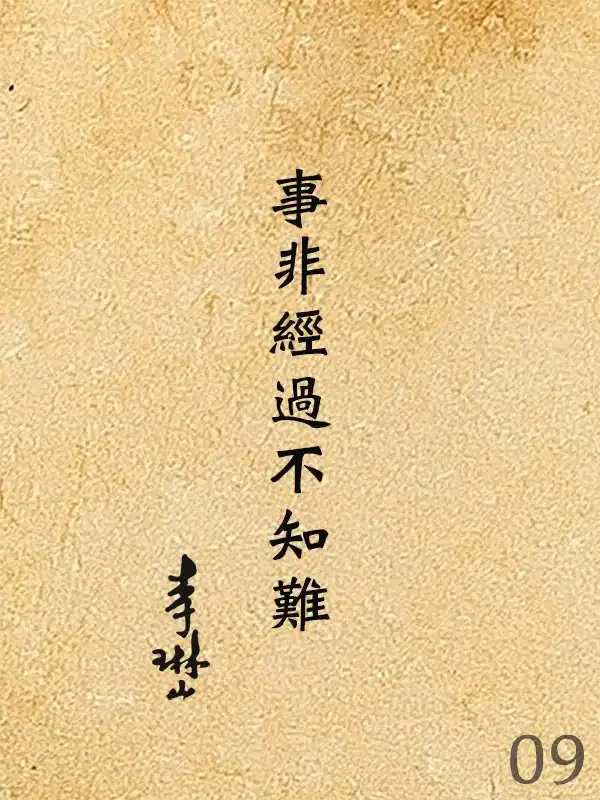 事非經過不知難
李琳山
09